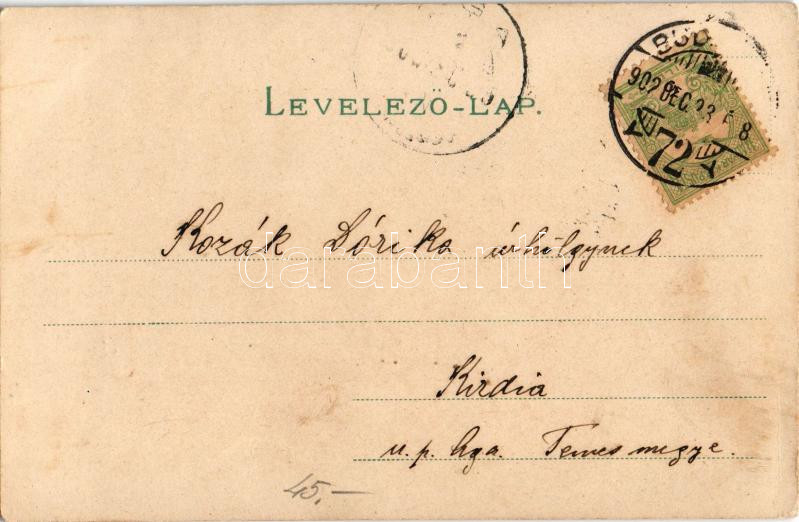 LEVELEZŐ-LAP.
BUD
902 DEC 23
8
72
Kozák Dórika úrhölgynek
darabanth
Kirdia
u. p. Aga. Temesmegye.
45.-